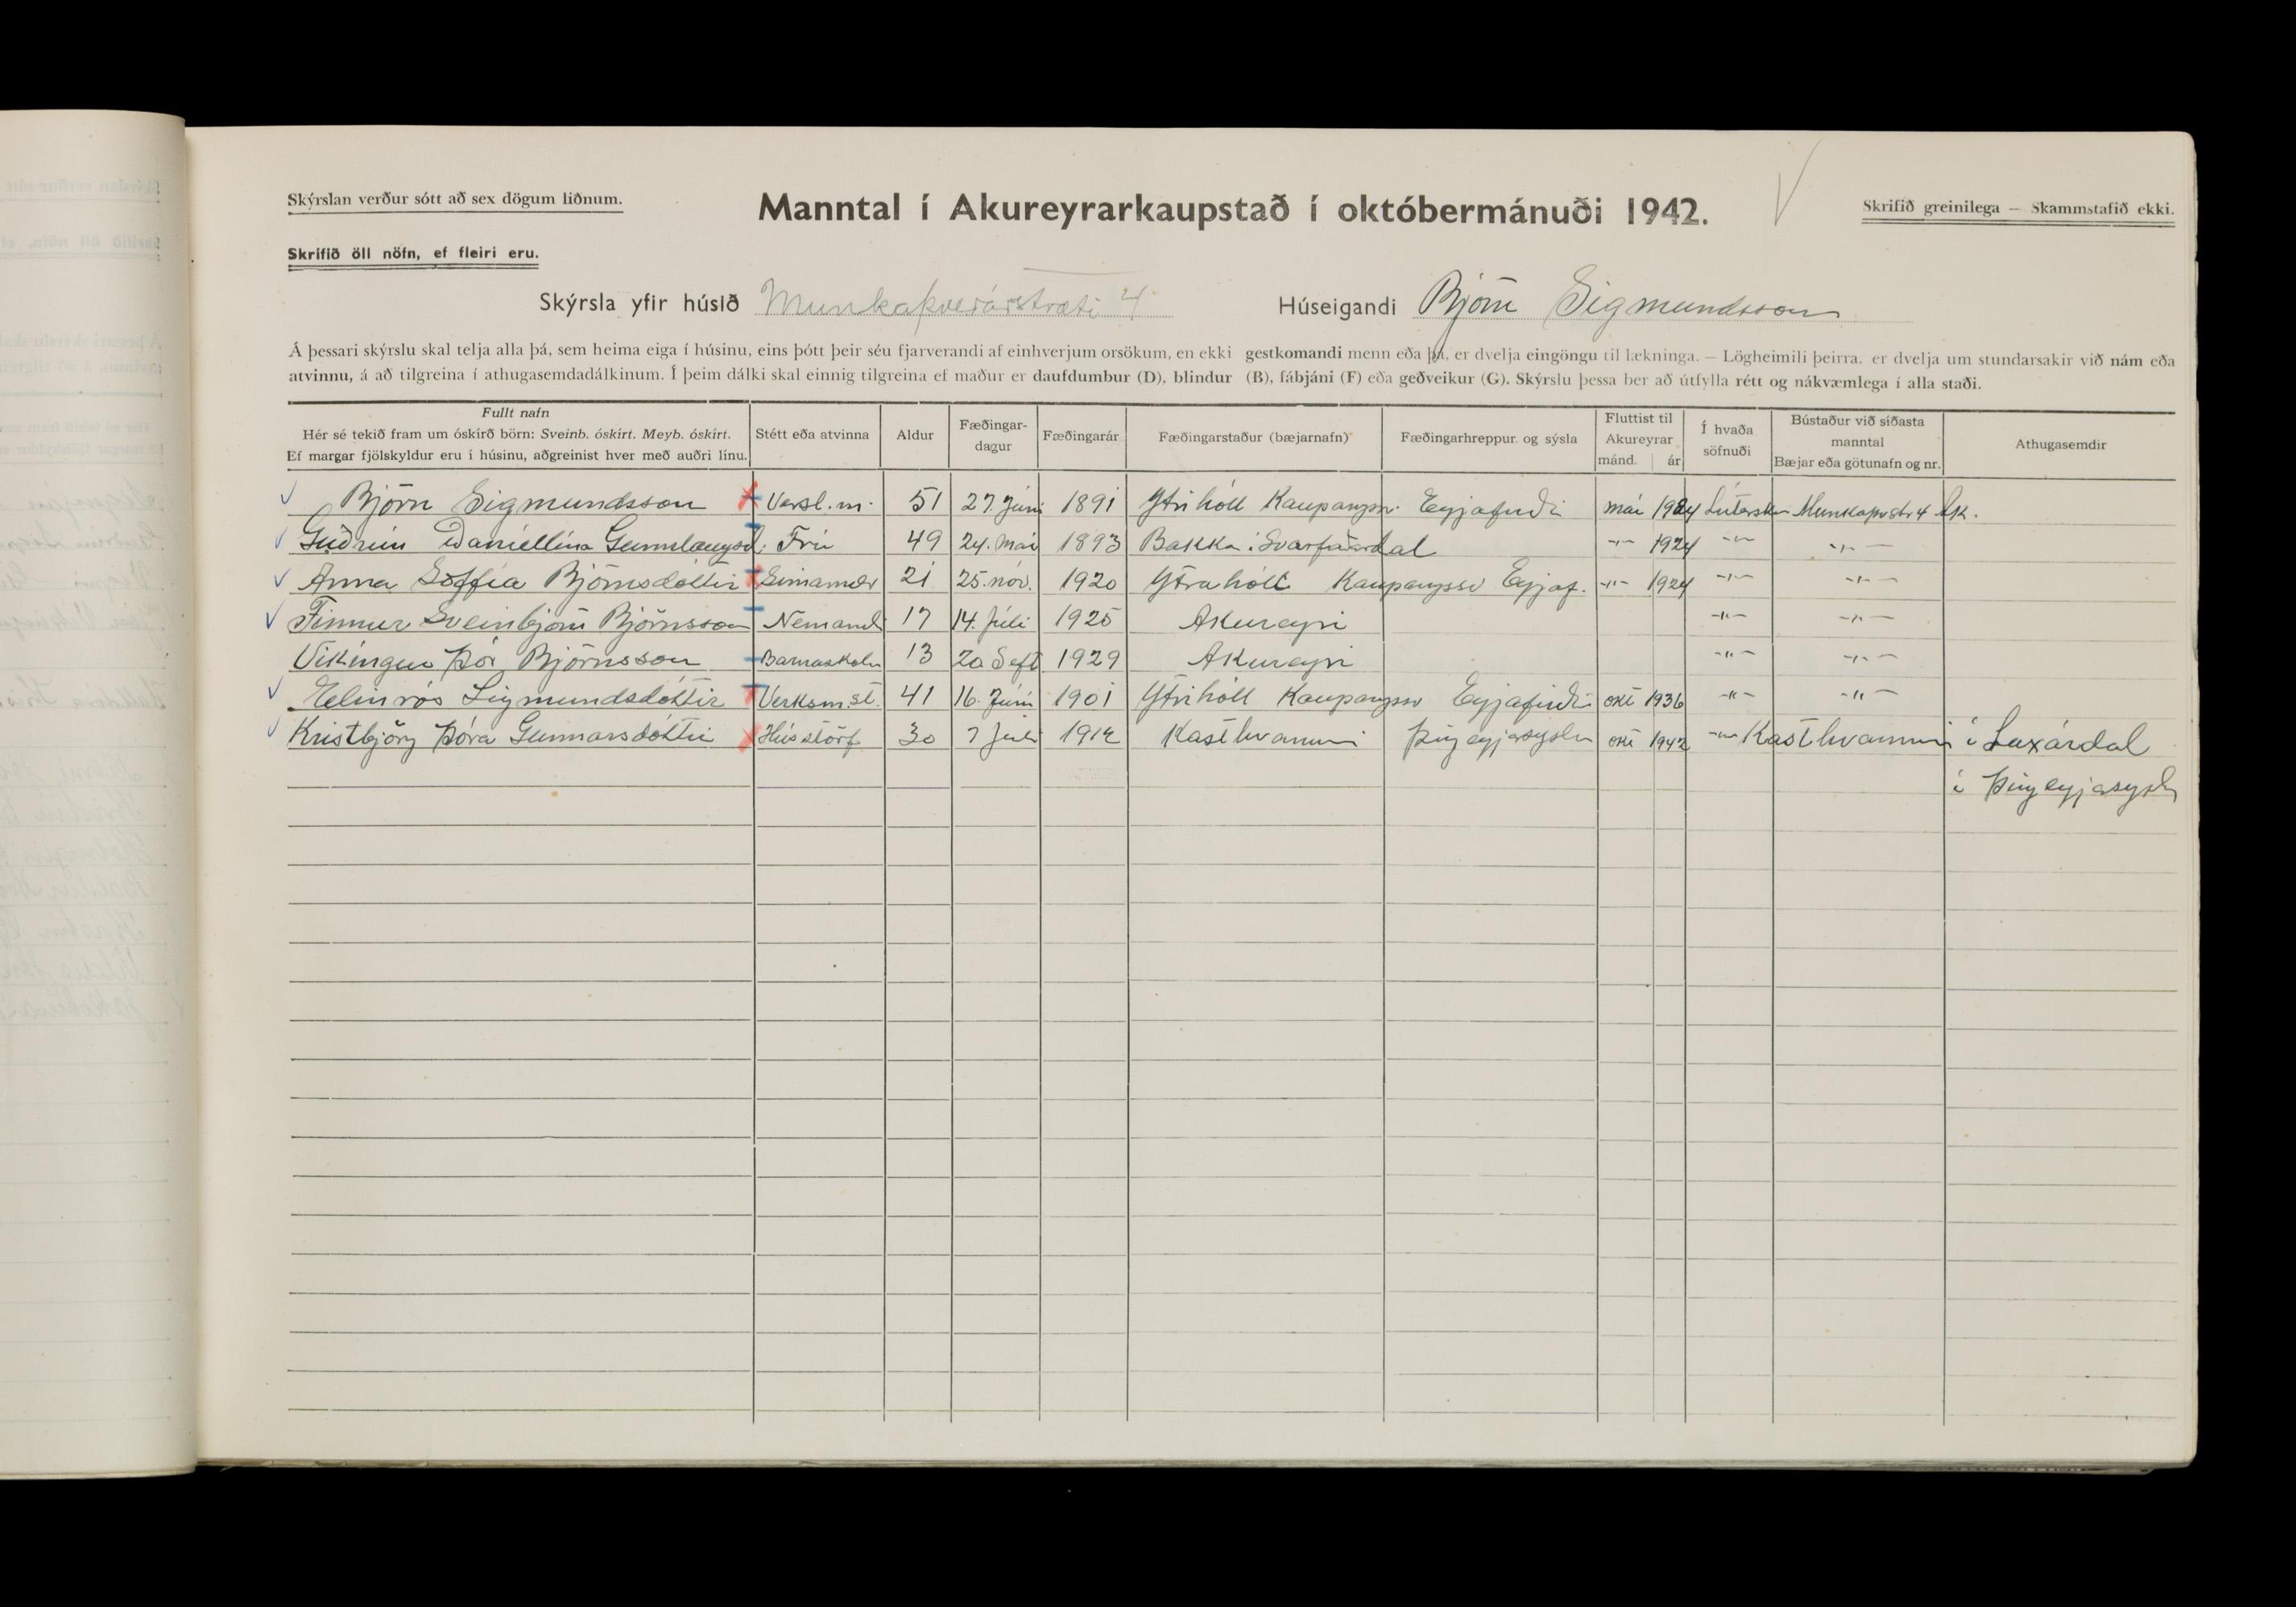 Skýrslan verður sótt að sex dögum liðnum.
Manntal í Akureyrarkaupstað í októbermánuði 1942.
Skrifið greinilega — Skammstafið ekki.
Skrifið öll nöfn, ef fleiri eru.
Skýrsla yfir húsið Munkaþverárstræti 4 Húseigandi Björn Sigmundsson
Á þessari skýrslu skal telja alla þá, sem heima eiga í húsinu, eins þótt þeir séu fjarverandi af einhverjum orsökum, en ekki gestkomandi menn eða þá, er dvelja eingöngu til lækninga. — Lögheimili þeirra, er dvelja um stundarsakir við nám eða
atvinnu, á að tilgreina í athugasemdadálkinum. Í þeim dálki skal einnig tilgreina ef maður er daufdumbur (D), blindur (B), fábjáni (F) eða geðveikur (G). Skýrslu þessa ber að útfylla rétt og nákvæmlega í alla staði.
Fullt nafn
Hér sé tekið fram um óskírð börn: Sveinb. óskírt. Meyb. óskírt.
Ef margar fjölskyldur eru í húsinu, aðgreinist hver með auðri línu.
Stétt eða atvinna
Aldur
Fæðingar-
dagur
Fæðingarár
Fæðingarstaður (bæjarnafn)
Fæðingarhreppur og sýsla
Fluttist til
Akureyrar
mánd. ár
Í hvaða
söfnuði
Bústaður við síðasta
manntal
Bæjar eða götunafn og nr.
Athugasemdir
Björn Sigmundsson Versl.m. 51 27. Júni 1891 Ytrihóll Kaupangssv. Eyjafirði maí 1924 Lúterska Munkaþvstr 4 Ak.
Guðrún Daníellína Gunnlaugsd. Frú 49 24. Maí 1893 Bakka í Svarfaðardal -"- 1924 -"- -"-
Anna Soffía Björnsdóttir 21 25. nóv. 1920 Ytrahóll Kaupangssv Eyjaf. -"- 1924 -"- -"-
Finnur Sveinbjörn Björnsson Nemandi 17 14. Júlí 1925 Akureyri -"- -"-
Víkingur Þór Björnsson Barnaskóla 13 20 Sept 1929 Akureyri -"- -"-
Elinrós Sigmundsdóttir Verksm.st. 41 16. Júní 1901 Ytrihóll Kaupangssv Eyjafirði okt 1936 -"- -"-
Kristbjörg Þóra Gunnarsdóttir Hússtörf 30 7 Júlí 1912 Kasthvammi Þingeyjarsýslu okt 1942 -"- Kasthvammi í Laxárdal
í Þingeyjasýslu